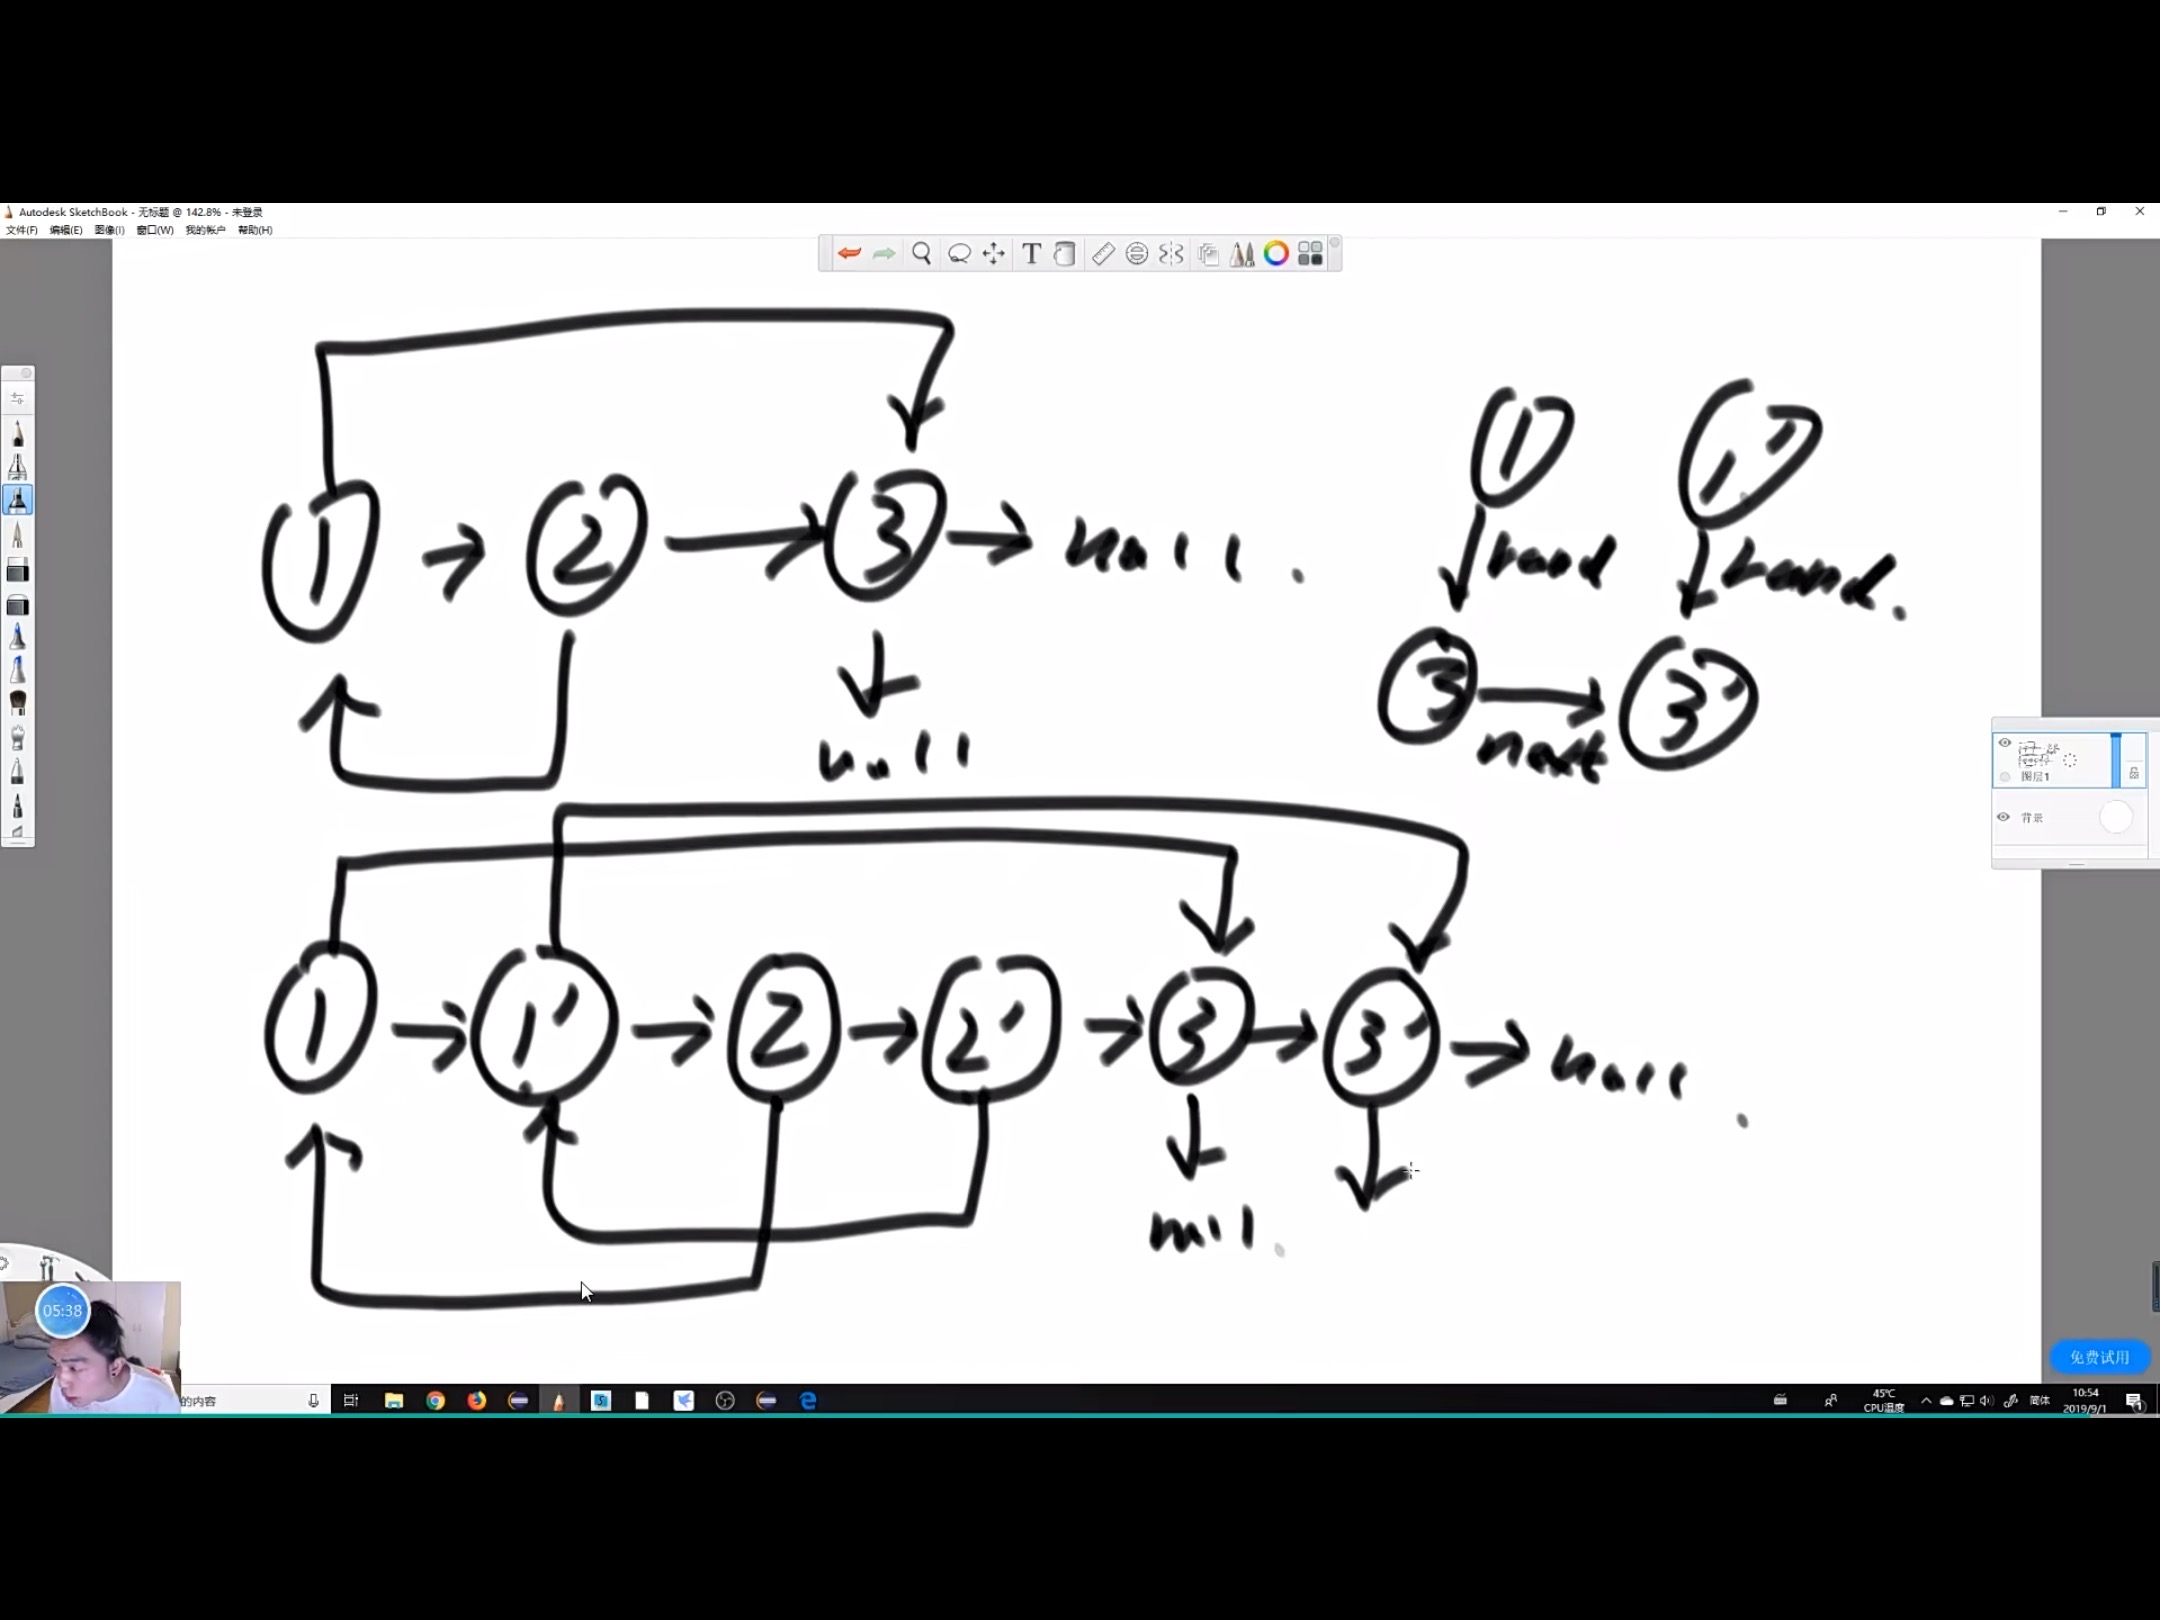 Autodesk SketchBook - 无标题 @ 142.8% - 未登录
文件(F) 编辑(E) 图像(I) 窗口(W) 我的帐户 帮助(H)
T
1 1'
1 → 2 → 3 → null.
rand rand.
3 → 3'
next
null
图层1
背景
1 → 1' → 2 → 2' → 3 → 3' → null.
null.
05:38
免费试用
的内容
45℃
CPU温度
简体
10:54
2019/9/1